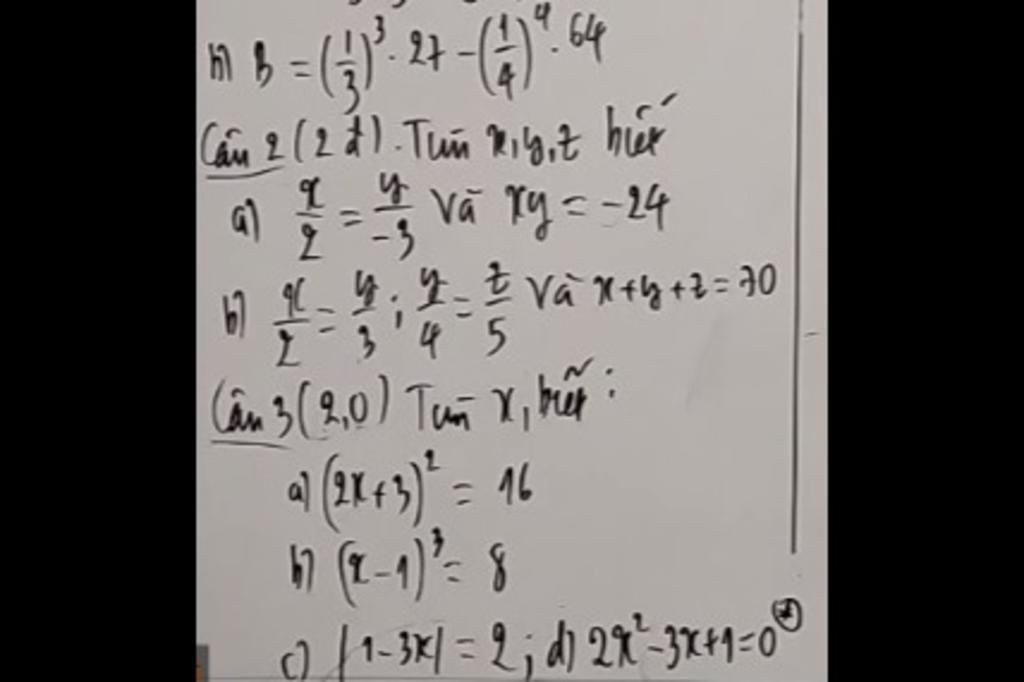 b) B = (1/3)^3 . 27 - (1/4)^4 . 64
Câu 2 (2đ). Tìm x, y, z biết
a) x/2 = y/-3 Và xy = -24
b) x/2 = y/3 ; y/4 = z/5 Và x + y + z = 70
Câu 3 (2,0) Tìm x, biết :
a) (2x + 3)^2 = 16
b) (x - 1)^3 = 8
c) |1 - 3x| = 2 ; d) 2x^2 - 3x + 1 = 0